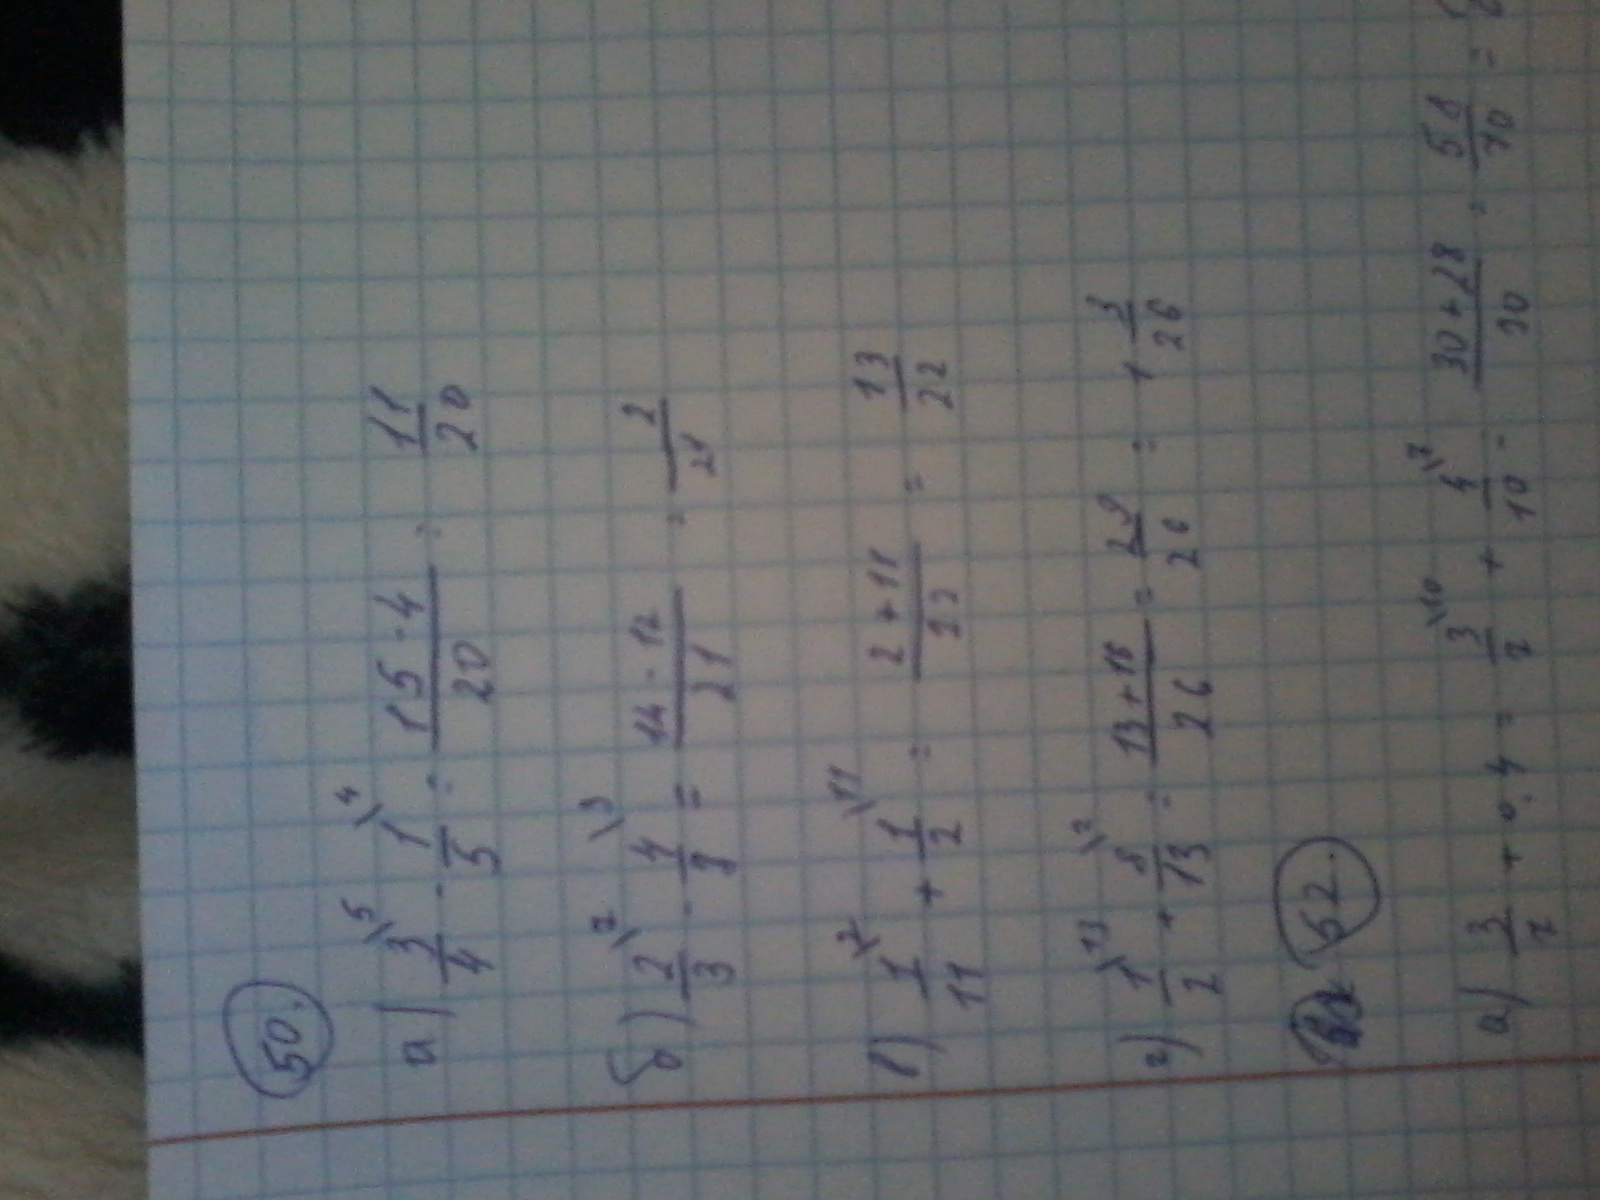 50.
а) 3\5/4 - 1\4/5 = 15-4/20 = 11/20
б) 2\7/3 - 4\3/7 = 14-12/21 = 2/21
в) 1\2/11 + 1\11/2 = 2+11/22 = 13/22
г) 1\13/2 + 8\2/13 = 13+16/26 = 29/26 = 1 3/26
52.
а) 3/7 + 0.4 = 3\10/7 + 4\7/10 = 30+28/70 = 58/70 =